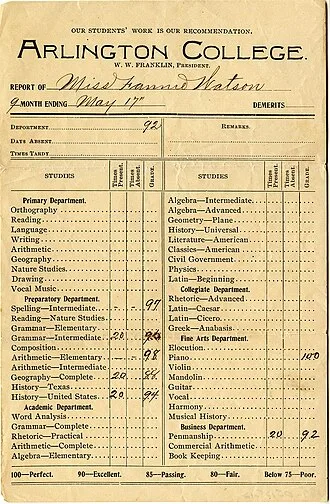 OUR STUDENTS' WORK IS OUR RECOMMENDATION.
ARLINGTON COLLEGE.
W. W. FRANKLIN, PRESIDENT.
REPORT OF Miss Fannie Watson
9 MONTH ENDING May 17" DEMERITS
DEPARTMENT 92
DAYS ABSENT.
TIMES TARDY
REMARKS.
STUDIES Times Present. Times Absent. GRADE.
Primary Department.
Orthography
Reading
Language
Writing
Arithmetic
Geography
Nature Studies
Drawing
Vocal Music
Preparatory Department.
Spelling—Intermediate 97
Reading—Nature Studies
Grammar—Elementary
Grammar—Intermediate 20
Composition
Arithmetic—Elementary 98
Arithmetic—Intermediate
Geography—Complete 20 88
History—Texas
History—United States 20 94
Academic Department.
Word Analysis
Grammar—Complete
Rhetoric—Practical
Arithmetic—Complete
Algebra—Elementary
STUDIES Times Present. Times Absent. GRADE.
Algebra—Intermediate
Algebra—Advanced
Geometry—Plane
History—Universal
Literature—American
Classics—American
Civil Government
Physics
Latin—Beginning
Collegiate Department.
Rhetoric—Advanced
Latin—Caesar
Latin—Cicero
Greek—Anabasis
Fine Arts Department.
Elocution
Piano 100
Violin
Mandolin
Guitar
Vocal
Harmony
Musical History
Business Department.
Penmanship 20 92
Commercial Arithmetic
Book Keeping
100—Perfect. 90—Excellent. 85—Passing. 80—Fair. Below 75—Poor.